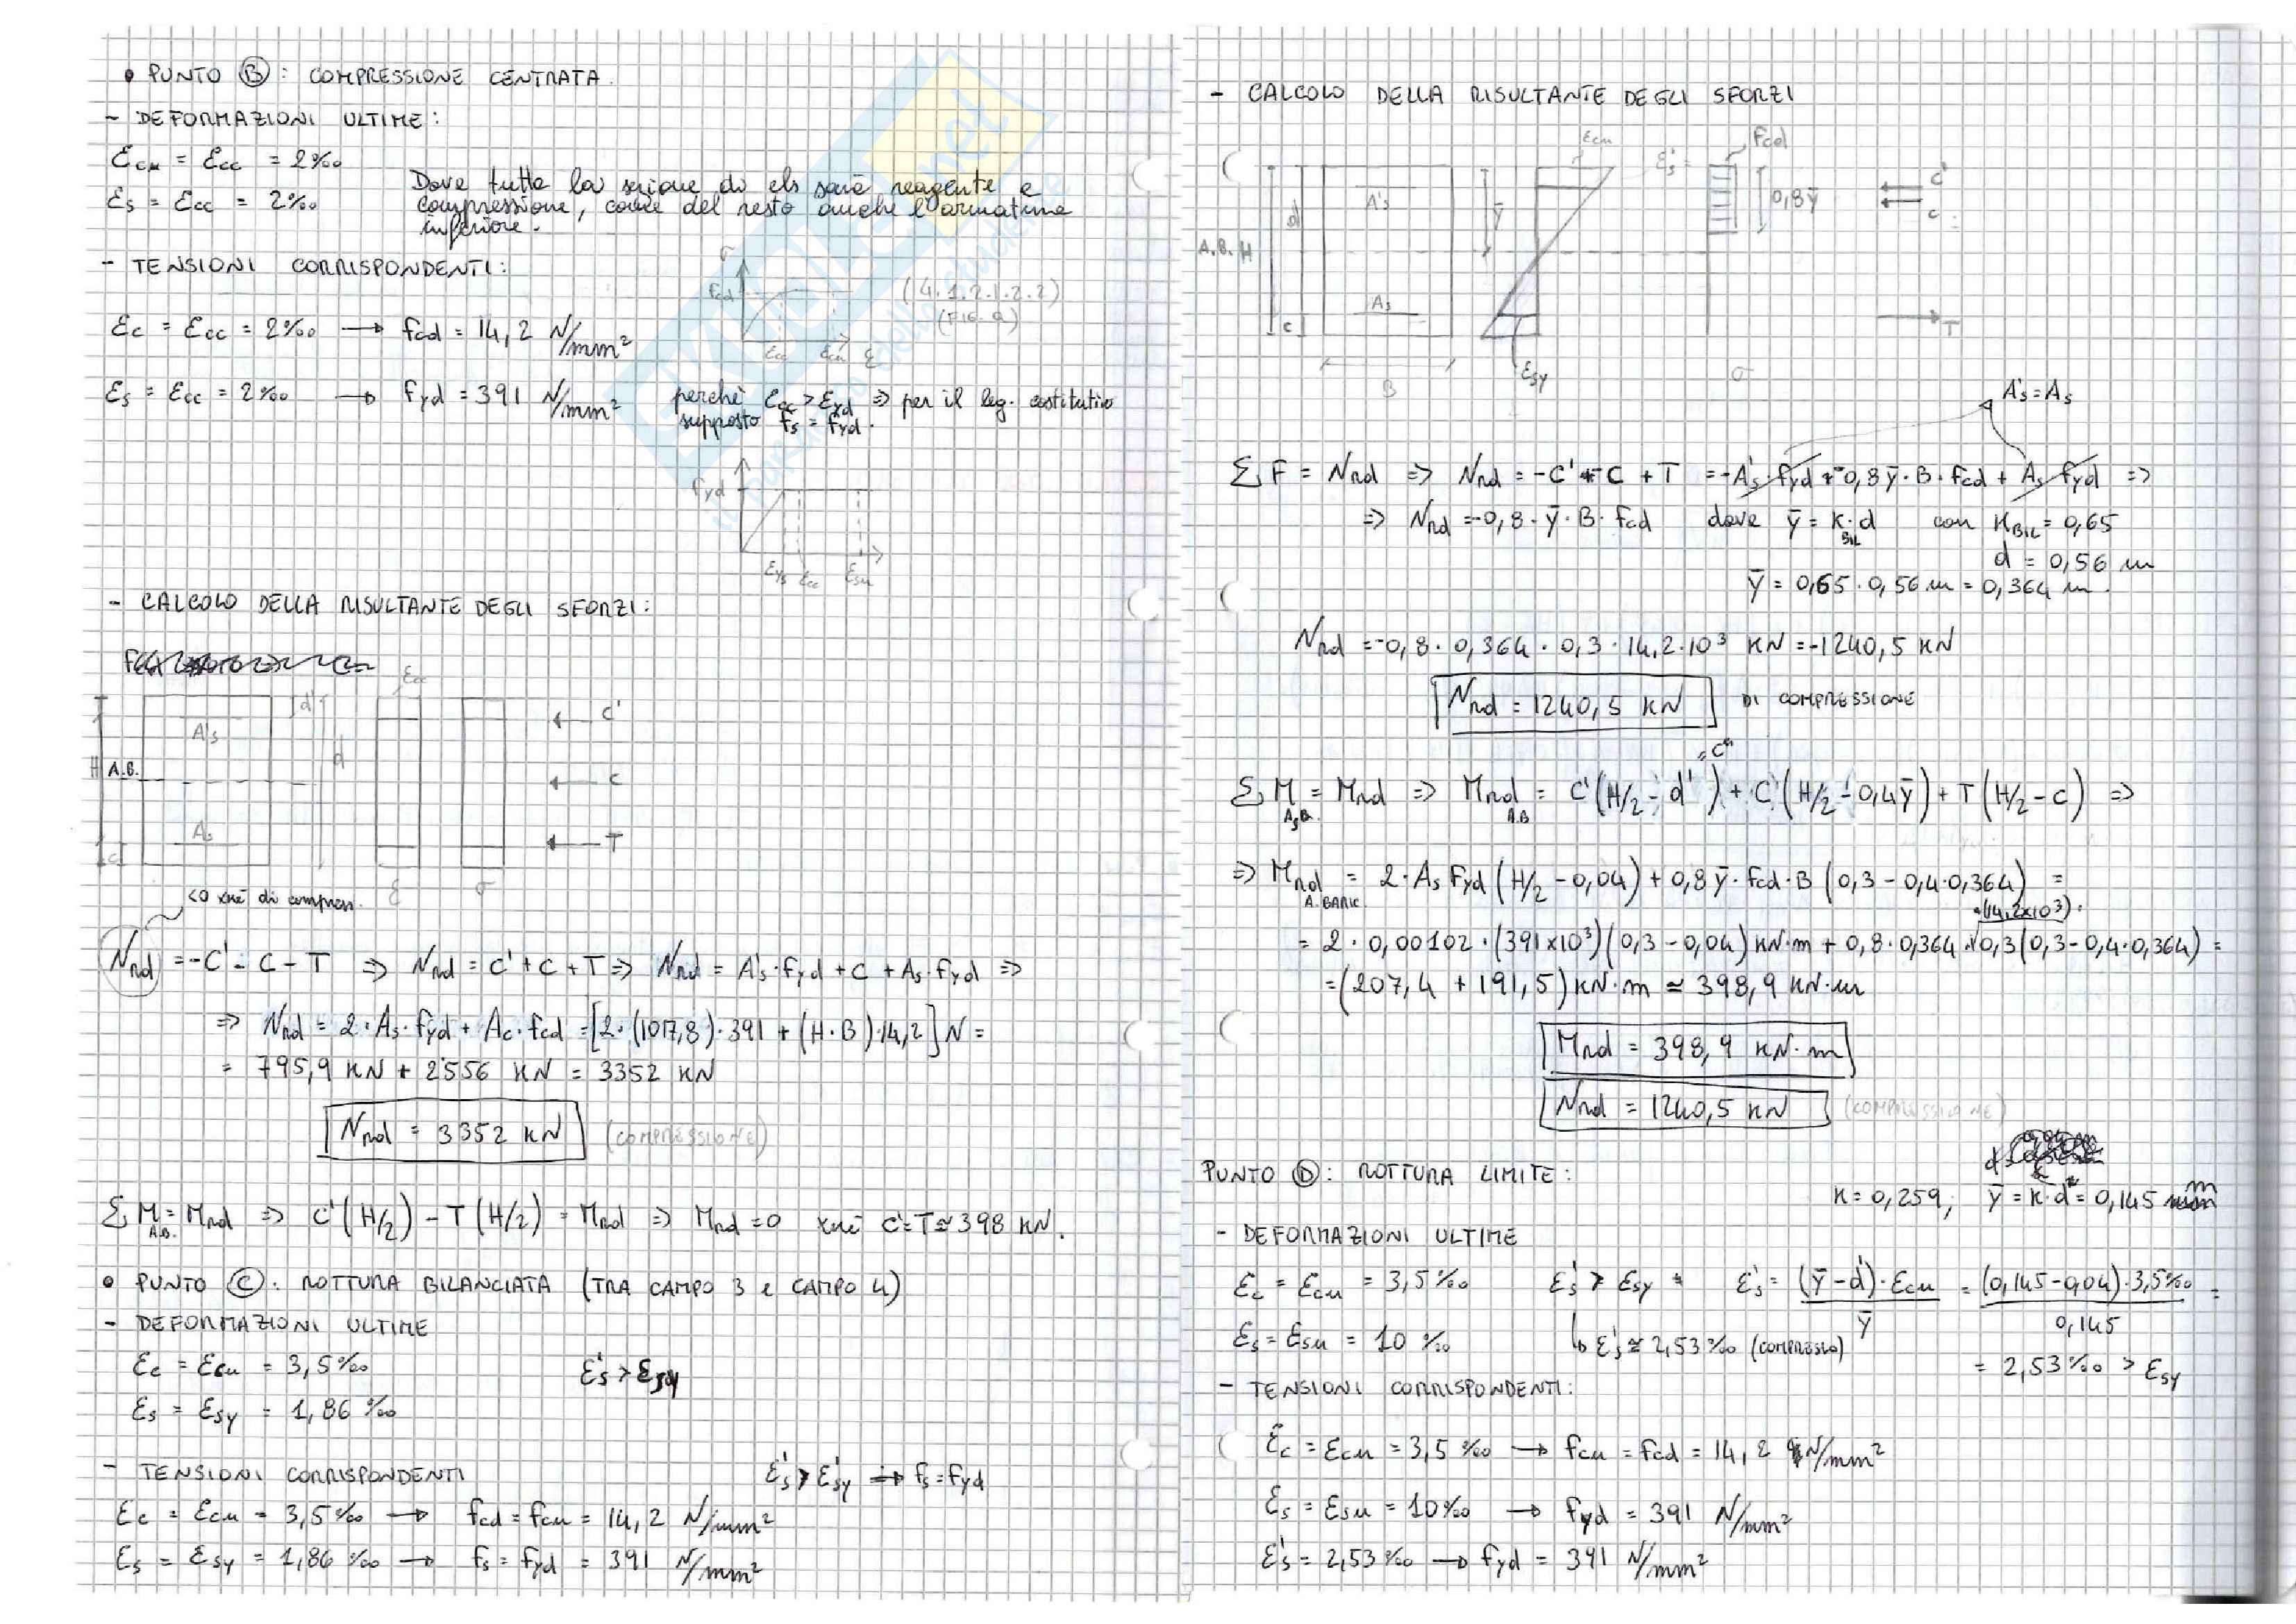 • PUNTO Ⓑ: COMPRESSIONE CENTRATA.
- DEFORMAZIONI ULTIME:
Ecu = Ecc = 2‰
Es = Ecc = 2‰
Dove tutta la sezione di cls sarà reagente e
compressione, come del resto anche l'armatura
inferiore.
- TENSIONI CORRISPONDENTI:
σ
fcd
(4.1.2.1.2.2)
(FIG. a)
Ecc Ecu E
Ec = Ecc = 2‰ → fcd = 14,2 N/mm²
Es = Ecc = 2‰ → fyd = 391 N/mm² perchè Ecc > Eyd ⇒ per il leg. costitutivo
supposto fs = fyd.
fyd
Eys Ecc Esu
- CALCOLO DELLA RISULTANTE DEGLI SFORZI:
Ecc
H A.B. A's d' d As c' E σ
C'
C
T
<0 xchè di compress.
Nrd = -C' - C - T ⇒ Nrd = C' + C + T ⇒ Nrd = A's·fyd + C + As·fyd ⇒
⇒ Nrd = 2·As·fyd + Ac·fcd = [2·(1017,8)·391 + (H·B)·14,2] N =
= 795,9 KN + 2556 KN = 3352 KN
Nrd = 3352 KN (COMPRESSIONE)
Σ M = Mrd ⇒ C'(H/2) - T(H/2) = Mrd ⇒ Mrd = 0 xchè C'=T≃398 KN.
A.B.
• PUNTO Ⓒ: ROTTURA BILANCIATA (TRA CAMPO 3 e CAMPO 4)
- DEFORMAZIONI ULTIME
Ec = Ecu = 3,5‰ E's > Esy
Es = Esy = 1,86‰
- TENSIONI CORRISPONDENTI E's > E'sy → fs = fyd
Ec = Ecu = 3,5‰ → fcd = fcu = 14,2 N/mm²
Es = Esy = 1,86‰ → fs = fyd = 391 N/mm²
- CALCOLO DELLA RISULTANTE DEGLI SFORZI
Ecu E's fcd
A's d ȳ 0,8ȳ C' C
A.B. H
As c T
B Esy σ
A's = As
Σ F = Nrd ⇒ Nrd = -C' - C + T = -A's·fyd - 0,8ȳ·B·fcd + As fyd ⇒
⇒ Nrd = -0,8·ȳ·B·fcd dove ȳ = K·d con KBIL = 0,65
BIL
d = 0,56 m
ȳ = 0,65·0,56 m = 0,364 m.
Nrd = -0,8·0,364·0,3·14,2·10³ KN = -1240,5 KN
Nrd = 1240,5 KN DI COMPRESSIONE
= c"
Σ M = Mrd ⇒ Mrd = C'(H/2 - d') + C(H/2 - 0,4ȳ) + T(H/2 - c) ⇒
A.B. A.B
⇒ Mrd = 2·As fyd (H/2 - 0,04) + 0,8ȳ·fcd·B (0,3 - 0,4·0,364) =
A. BARIC. ·(14,2x10³)·
= 2·0,00102·(391x10³)(0,3 - 0,04) KN·m + 0,8·0,364·0,3(0,3 - 0,4·0,364) =
= (207,4 + 191,5) KN·m ≃ 398,9 KN·m
Mrd = 398,9 KN·m
Nrd = 1240,5 KN (COMPRESSIONE)
PUNTO Ⓓ: ROTTURA LIMITE:
K = 0,259; ȳ = K·d = 0,145 m
- DEFORMAZIONI ULTIME
Ec = Ecu = 3,5‰ E's > Esy E's = (ȳ - d')·Ecu / ȳ = (0,145 - 0,04)·3,5‰ / 0,145 =
Es = Esu = 10‰ ↳ E's ≃ 2,53‰ (COMPRESSO) = 2,53‰ > Esy
- TENSIONI CORRISPONDENTI:
Ec = Ecu = 3,5‰ → fcu = fcd = 14,2 N/mm²
Es = Esu = 10‰ → fyd = 391 N/mm²
E's = 2,53‰ → fyd = 391 N/mm²